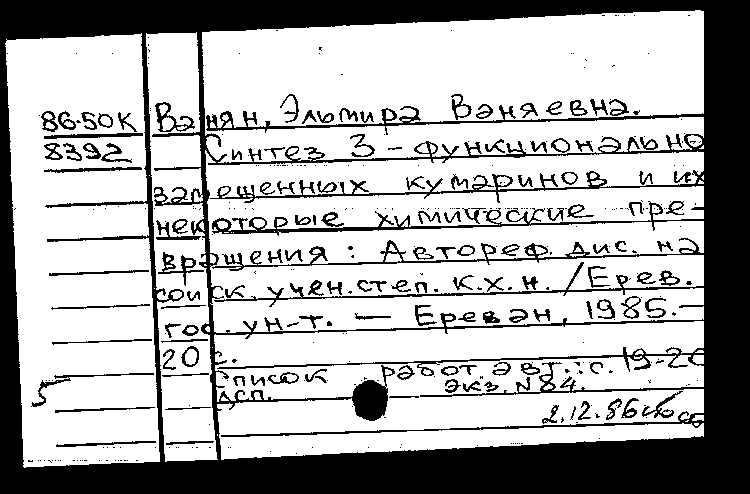 86-50К Ванян, Эльмира Ваняевна.
8392 Синтез 3-функционально
замещенных кумаринов и их
некоторые химические пре-
вращения : Автореф. дис. на
соиск. учен. степ. к.х.н. / Ерев.
гос. ун-т. — Ереван, 1985. —
20 с.
Список работ авт.: с. 19-20
ДСП. экз. N 84.
5
2.12.86